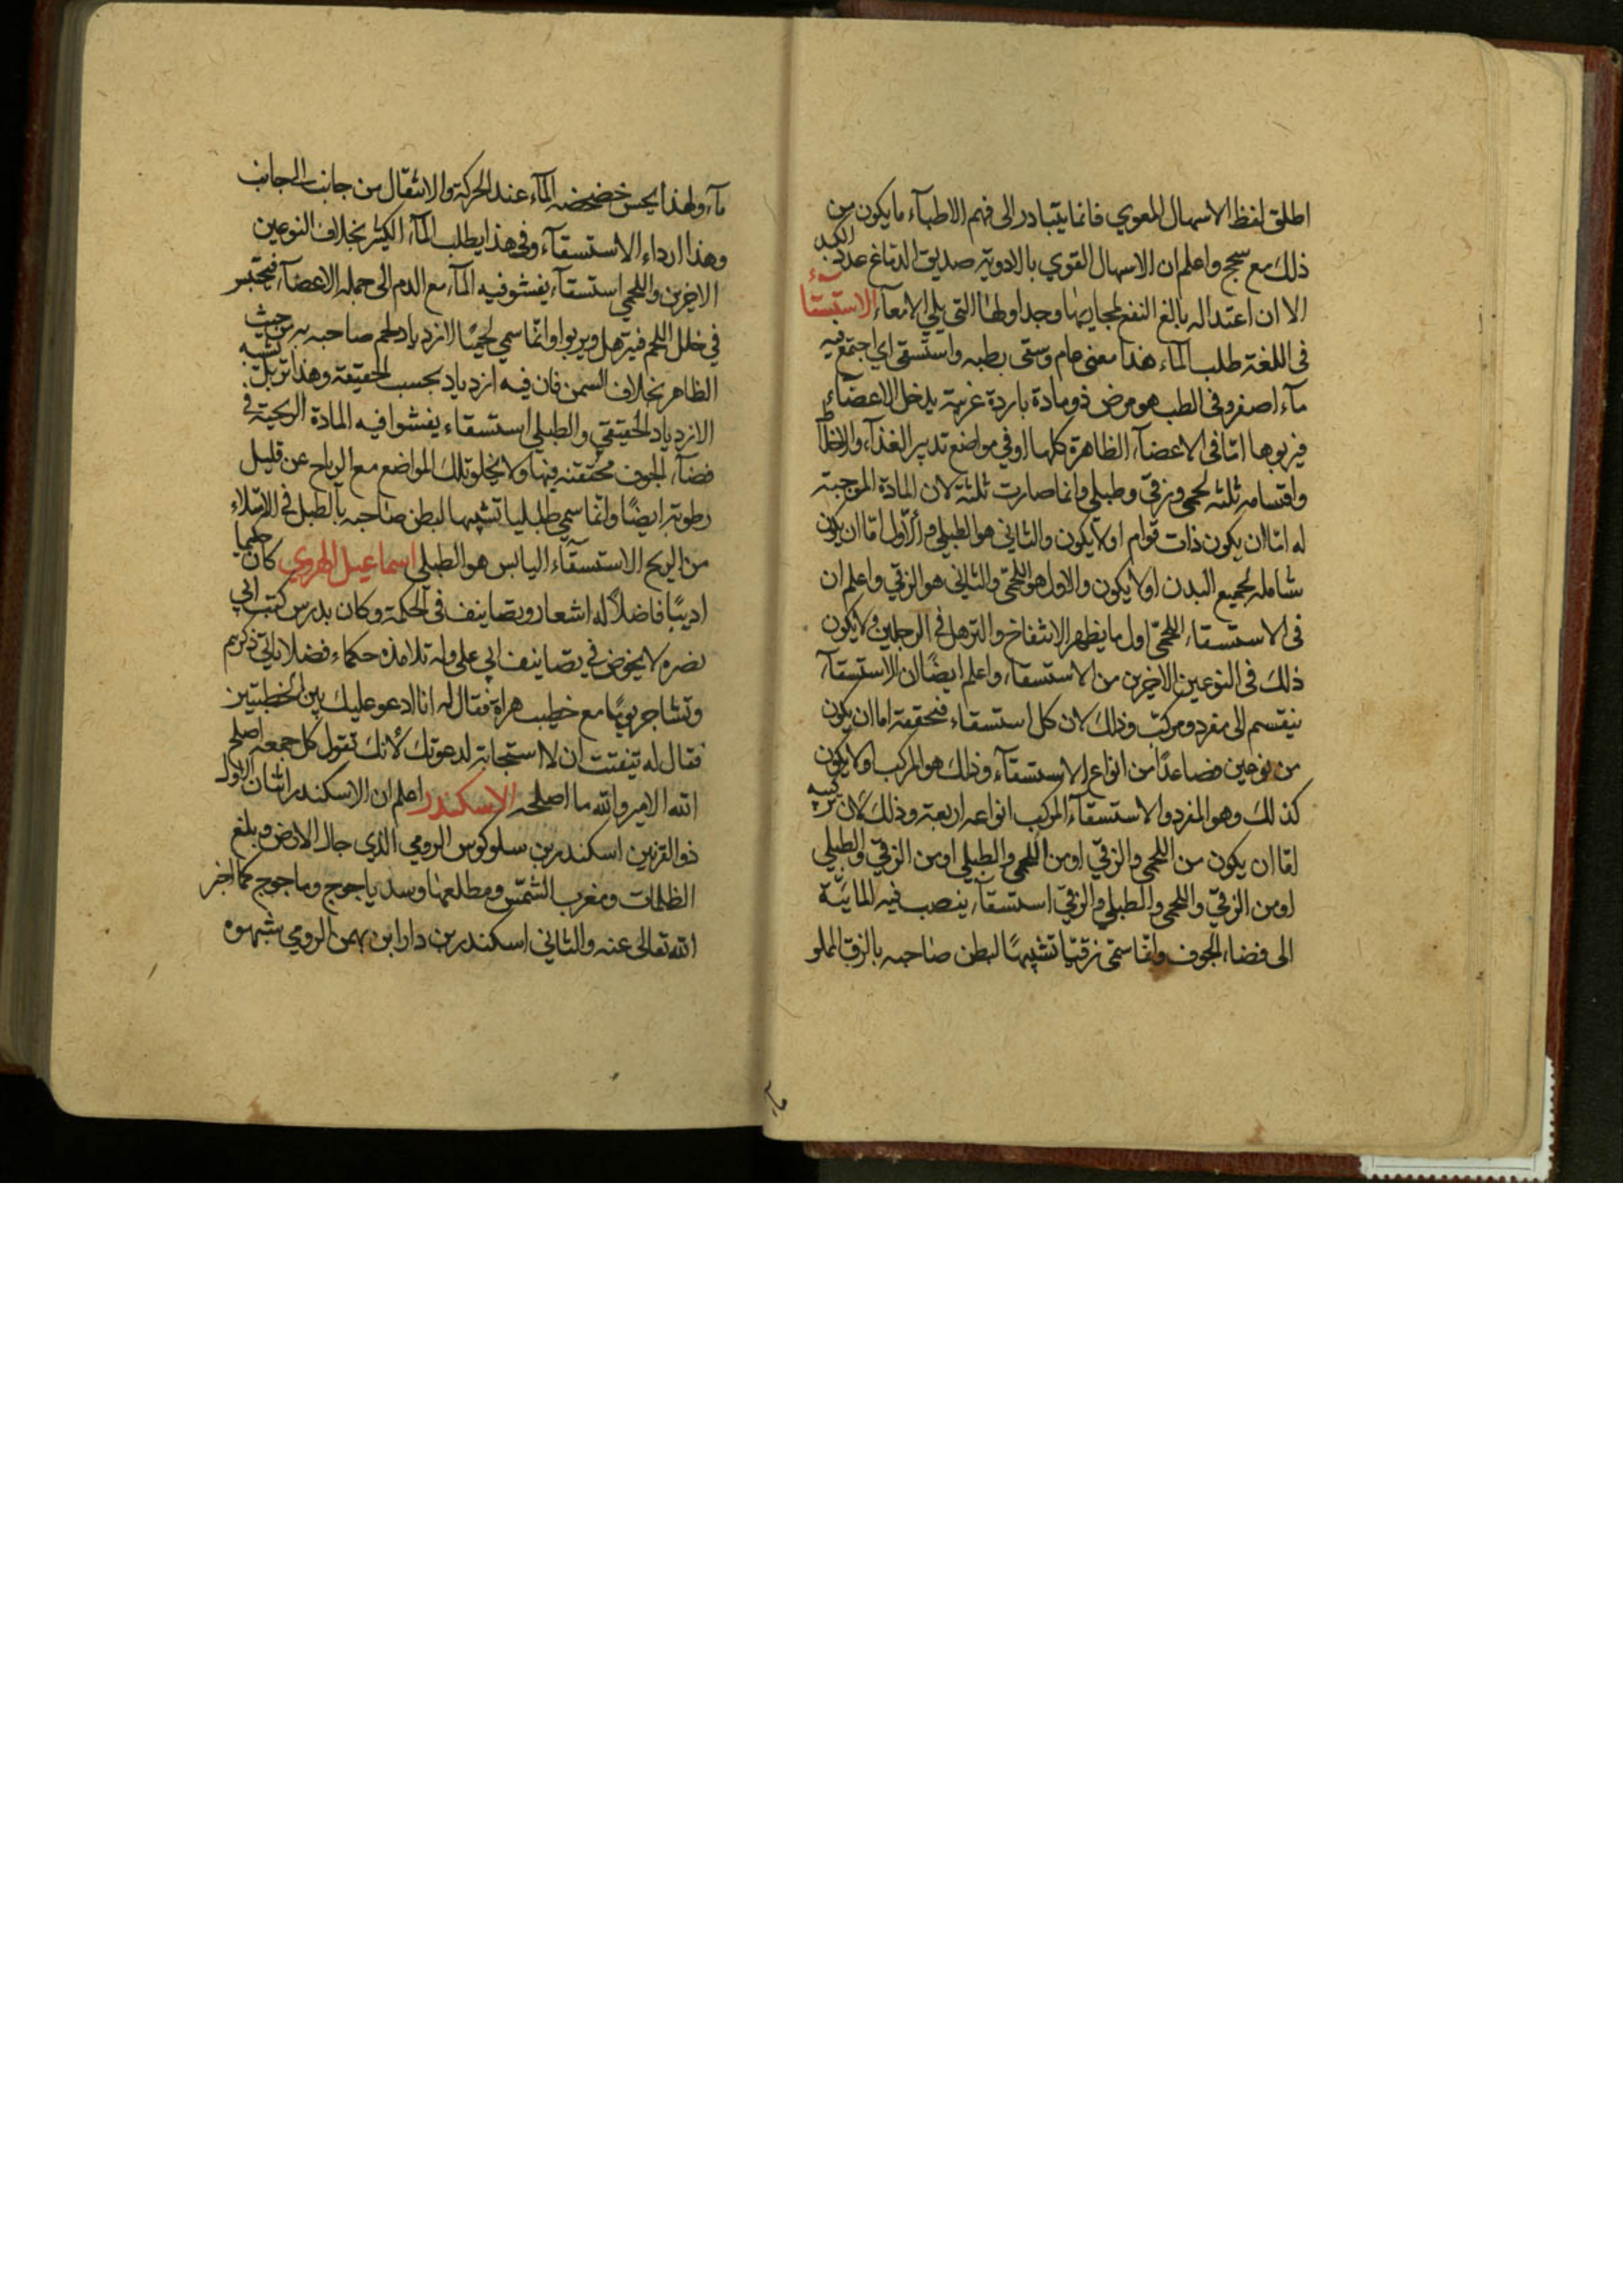 اطلق لفظ الاسهال المعوي فانما يتبادر الى فهم الاطباء ما يكون من
ذلك مع سحج واعلم ان الاسهال القوي بالادوية صديق الدماغ عدو الكبد
الا ان اعتداله بالغ النفع لمجاريها وجداولها التي يلي الامعاء الاستسقاء
فى اللغة طلب الماء هذا معنى عام وسقى بطنه واستسقى اي اجتمع فيه
ماء اصفر وفى الطب هو مرض ذو مادة باردة غريبة يدخل الاعضاء
فيربوها اما فى الاعضاء الظاهرة كلها او في مواضع تدبير الغذاء والاخلاط
واقسامه ثلثه لحمى وزقي وطبلي وانما صارت ثلثة لان المادة الموجبة
له اما ان يكون ذات قوام او لا يكون والثاني هو الطبلي والاول اما ان يكون
شامله لجميع البدن او لا يكون والاول هو اللحمي والثاني هو الزقي واعلم ان
فى الاستسقاء اللحمي اول ما يظهر الانتفاخ والترهل في الرجلين ولا يكون
ذلك فى النوعين الاخرين من الاستسقاء واعلم ايضًا ان الاستسقاء
ينقسم الى مفرد ومركب وذلك لان كل استسقاء فتحققه اما ان يكون
من نوعين فصاعدًا من انواع الاستسقاء وذلك هو المركب او لا يكون
كذلك وهو المفرد والاستسقاء المركب انواعه اربعة وذلك لان تركيبه
اما ان يكون من اللحمي والزقي او من اللحمي والطبلي او من الزقي والطبلي
او من الزقي واللحمي والطبلي والزقي استسقاء ينصب فيه المائية
الى فضاء الجوف وانما سمى زقيا تشبيهًا لبطن صاحبه بالزق المملو
ماء
ماء ولهذا يحس خضخضه الماء عند الحركة والانتقال من جانب الى جانب
وهذا ارداء الاستسقاء وفي هذا يطلب الماء الكثير بخلاف النوعين
الاخرين واللحمي استسقاء يفشو فيه الماء مع الدم الى جملة الاعضاء فيحتبس
في خلل اللحم فيترهل ويربوا وانما سمي لحميًا لازدياد لحم صاحبه به من حيث
الظاهر بخلاف السمن فان فيه ازدياد بحسب الحقيقة وهذا تربل يشبه
الازدياد الحقيقي والطبلي استسقاء يفشوا فيه المادة الريحية في
فضاء الجوف محتقنه فيها ولا يخلو تلك المواضع مع الرياح عن قليل
رطوبة ايضًا وانما سمي طبليا تشبيها لبطن صاحبه بالطبل في الامتلاء
من الريح الاستسقاء اليابس هو الطبلي اسماعيل الهروي كان حكيما
اديبًا فاضلًا له اشعار وتصانيف فى الحكمة وكان يدرس كتب ابي
نصره لا يخوض في تصانيف ابي على وله تلامذه حكماء فضلا ياتي ذكرهم
وتشاجر يومًا مع خطيب هراة فقال له انا ادعو عليك بين الخطبتين
فقال له تيقنت ان لا استجابة لدعوتك لانك تقول كل جمعه اصلح
الله الامير والله ما اصلحه الاسكندر اعلم ان الاسكندر اثنان الاول
ذو القرنين اسكندر بن سلوكوس الرومي الذي جال الارض وبلغ
الظلمات ومغرب الشمس ومطلعها وسد ياجوج وماجوج كما اخبر
الله تعالى عنه والثاني اسكندر بن دارا بن بهمن الرومي شبهوه